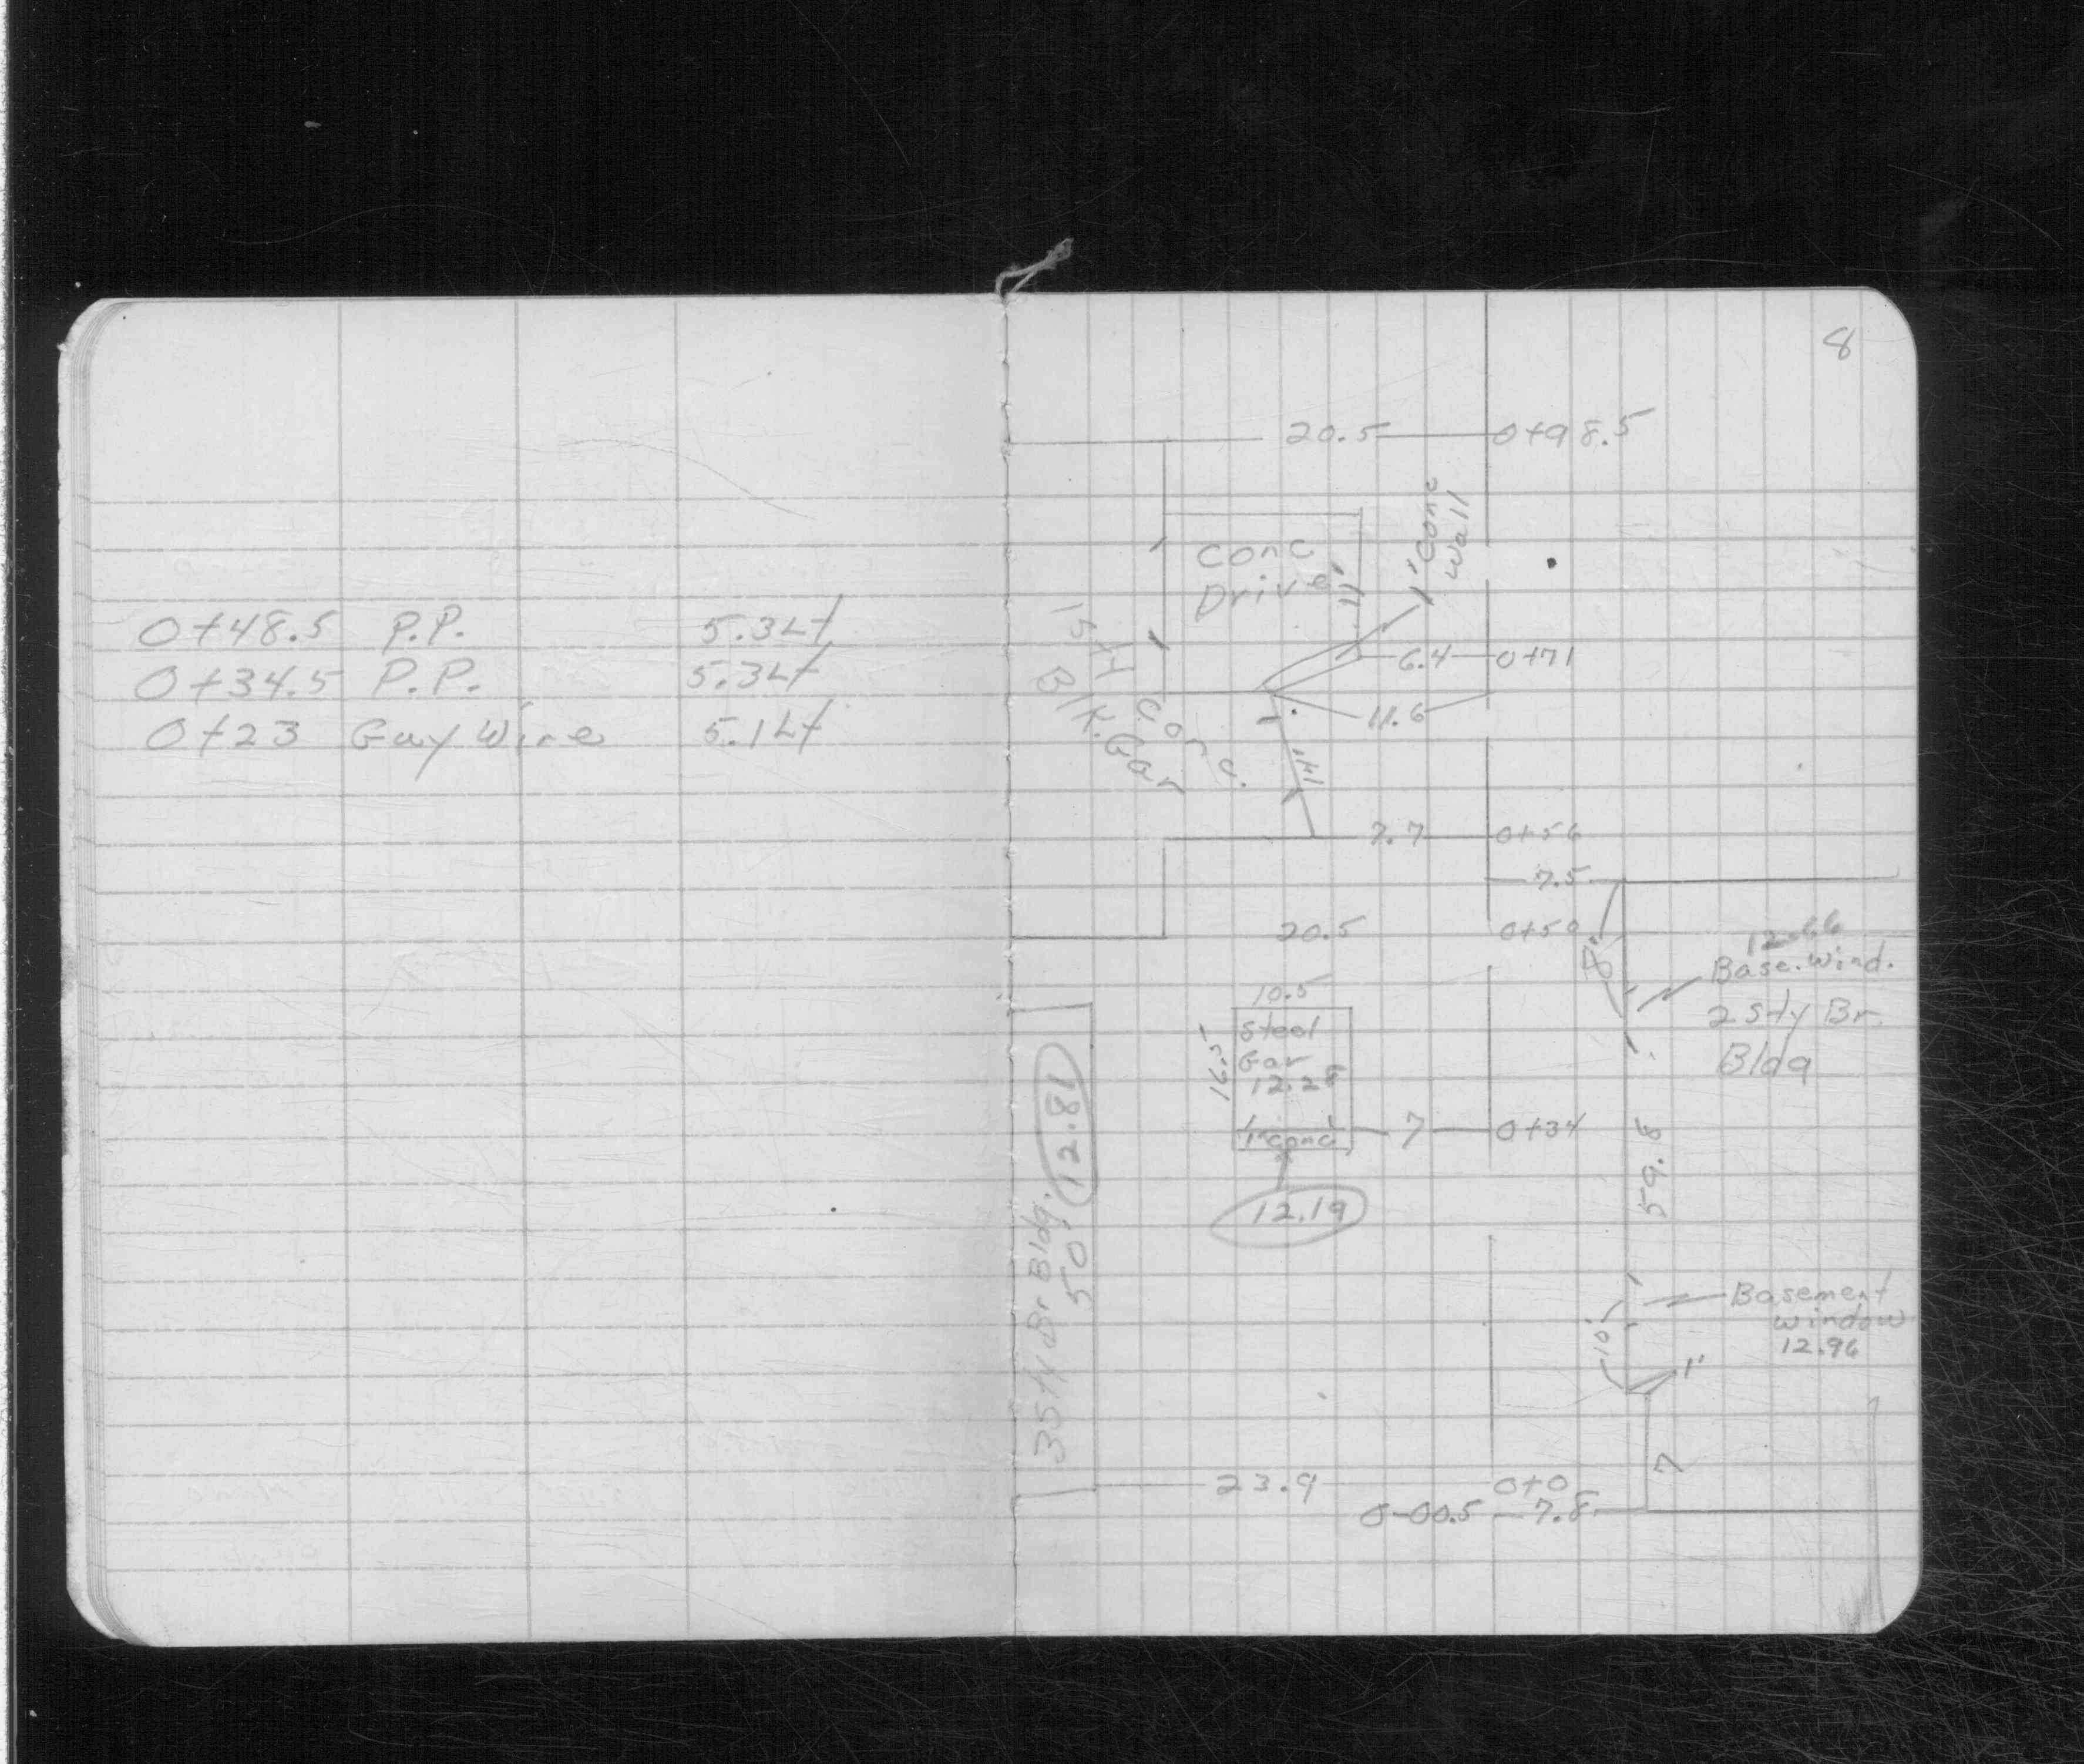 0+48.5 P.P. 5.3Lt
0+34.5 P.P. 5.3Lt
0+23 Guy Wire 5.1Lt
8
20.5 0+98.5
1' Conc
Wall
Conc
Drive
11'
6.4 0+71
1 Sty
Blk. Gar
Conc.
11.6
14'
7.7 0+56
7.5
20.5 0+50
8'
12.66
Base. Wind.
2 Sty Br.
Bldg
10.5
16.5
Steel
Gar
12.29
1' conc
7 0+34
12.19
59.8
3 Sty Br Bldg.
50' 12.81
Basement
window
12.96
10'
1'
7
23.9 0+0
0-00.5 7.8